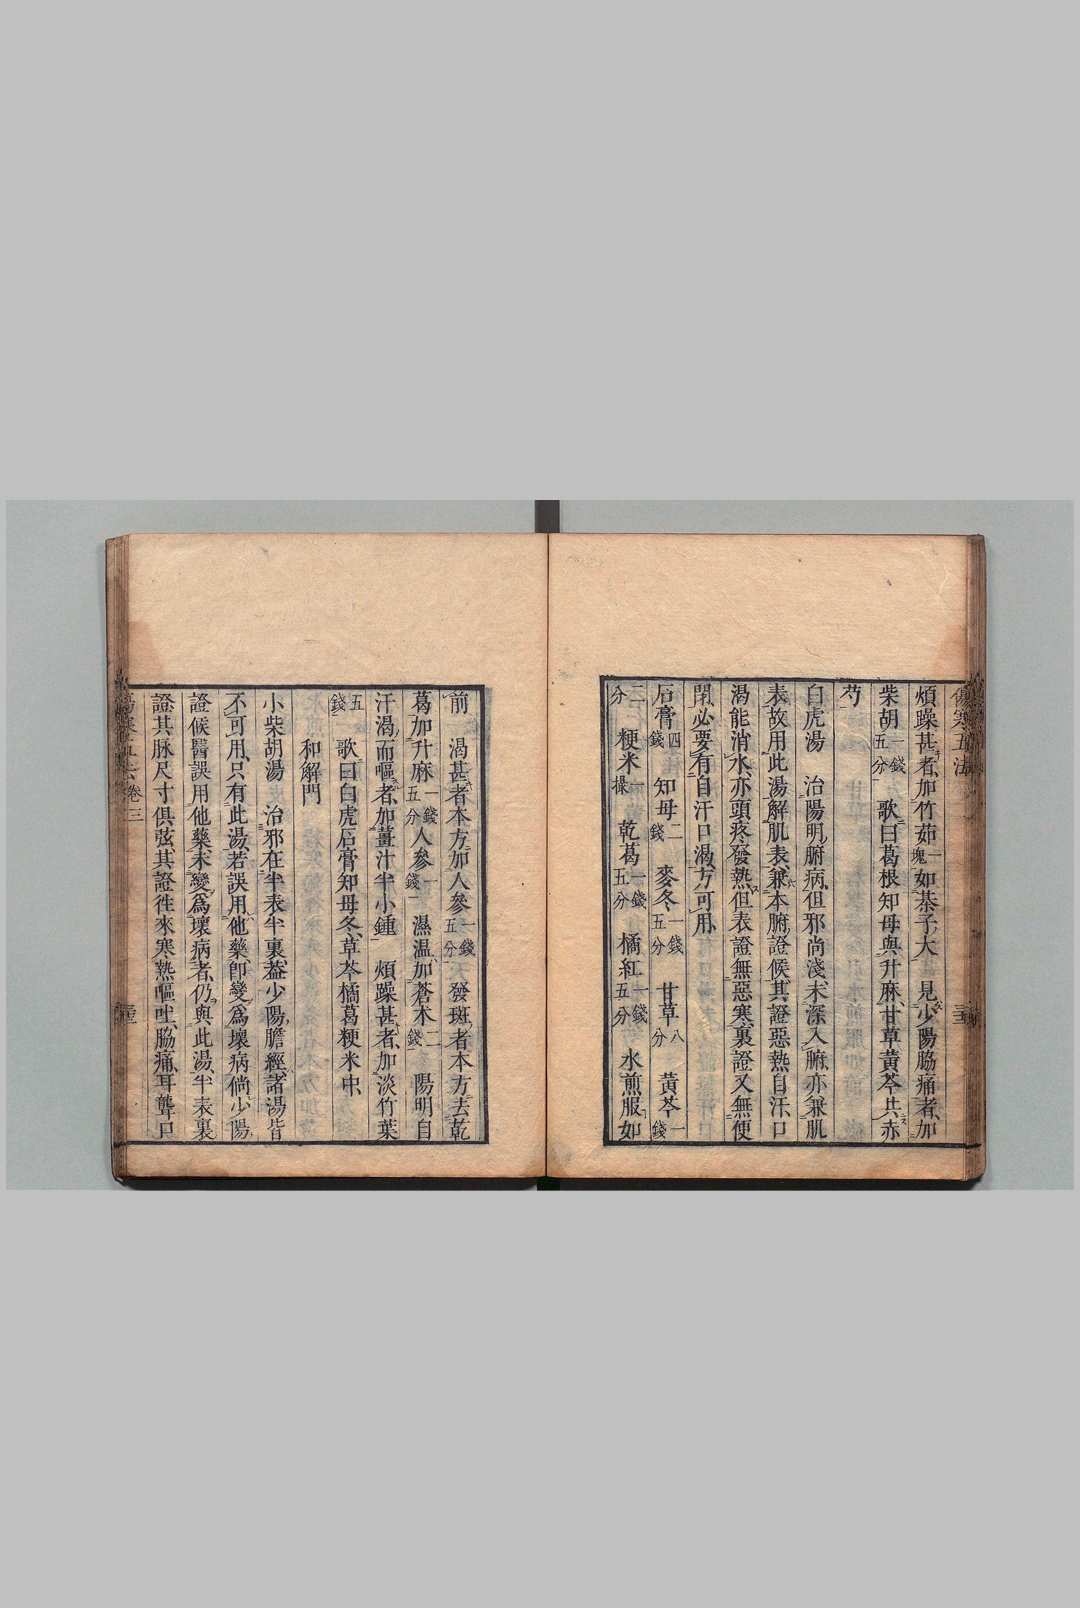 傷寒五法
煩躁甚者加竹茹一塊如茶子大 見少陽脇痛者加
柴胡一錢五分 歌曰葛根知母與升麻甘草黃芩共赤
芍
白虎湯 治陽明腑病但邪尚淺未深入腑亦兼肌
表故用此湯解肌表兼本腑證候其證惡熱自汗口
渴能消水亦頭疼發熱但表證無惡寒裏證又無便
閉必要有自汗口渴方可用
石膏四錢 知母二錢 麥冬一錢五分 甘草八分 黃芩一錢
二分 粳米一操 乾葛一錢五分 橘紅一錢五分 水煎服如
前 渴甚者本方加人參一錢五分 發斑者本方去乾
葛加升麻一錢五分人參一錢 濕温加蒼朮二錢 陽明自
汗渴而嘔者加薑汁半小鍾 煩躁甚者加淡竹葉
五錢 歌曰白虎石膏知母冬草芩橘葛粳米中
和解門
小柴胡湯 治邪在半表半裏蓋少陽膽經諸湯皆
不可用只有此湯若誤用他藥卽變爲壞病倘少陽
證候醫誤用他藥未變爲壞病者仍與此湯半表裏
證其脉尺寸俱弦其證徃來寒熱嘔吐脇痛耳聾口
卷三